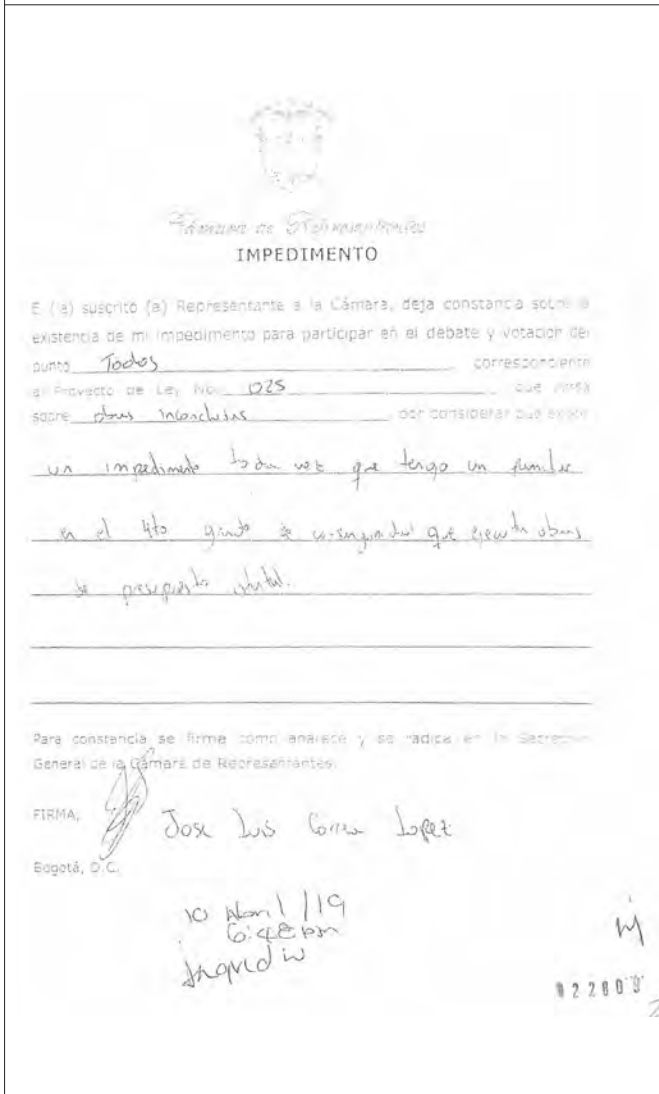 Cámara de Representantes
IMPEDIMENTO
E (la) suscrito (a) Representante a la Cámara, deja constancia sobre la
existencia de mi impedimento para participar en el debate y votación del
punto Todos correspondiente
al Proyecto de Ley No. 025 que versa
sobre obras inconclusas por considerar que existe
un impedimento toda vez que tengo un familiar
en el 4to grado de consanguinidad que ejecuta obras
de presupuesto estatal.
Para constancia se firma como aparece y se radica en la Secretaría
General de la Cámara de Representantes.
FIRMA,
Jose Luis Correa Lopez
Bogotá, D.C.
10 Abril /19
6:48 pm